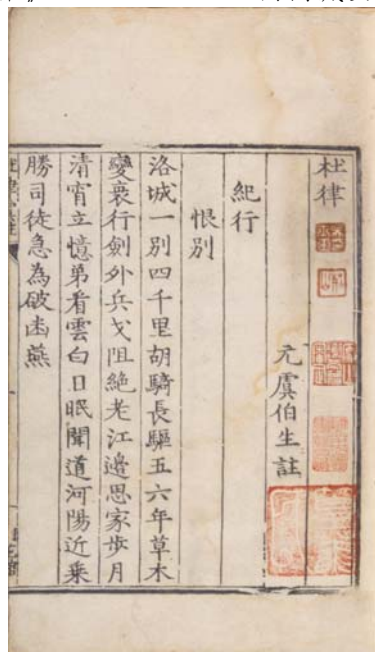 杜律
元虞伯生註
紀行
恨別
洛城一別四千里胡騎長驅五六年草木
變衰行劍外兵戈阻絶老江邊思家步月
清宵立憶弟看雲白日眠聞道河陽近乗
勝司徒急為破幽燕